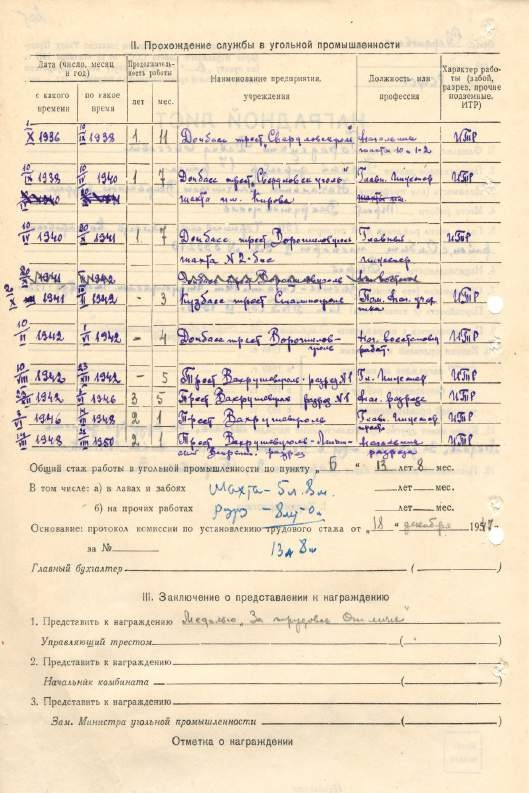 II. Прохождение службы в угольной промышленности
Дата (число, месяц и год)
Продолжительность работы
Наименование предприятия, учреждения
Должность или профессия
Характер работы (забой, разрев, прочие подземные. ИТР)
с какого времени
по какое время
лет
мес.
X 1936 IX 1938 1 11 Донбасс трест "Свердловуголь" Начальник шахты 10 и 1-2 ИТР
IX 1938 IV 1940 1 7 Донбасс трест "Свердловуголь" Главн. инженер ИТР
шахта им. Кирова
IV 1940 1941 1 7 Донбасс трест Ворошиловуголь Главный ИТР
шахта № 2-бис инженер
1941 1942
1941 1942 - 3 Кузбасс трест Сталинуголь Пом. нач. ИТР
II 1942 VI 1942 - 4 Донбасс трест Ворошиловуголь Нач. восстановит. работ. ИТР
VII 1942 1942 - 5 Трест Вахрушевуголь разрез №1 Гл. инженер ИТР
1942 1946 3 5 Трест Вахрушевуголь разрез №1 нач. разреза ИТР
1946 1948 2 1 Трест Вахрушевуголь Главн. инженер треста ИТР
1948 1950 2 1 Трест Вахрушевуголь разрез начальник разреза ИТР
Общий стаж работы в угольной промышленности по пункту „Б“ 13 лет 8 мес.
В том числе: а) в лавах и забоях Шахта - 5 л. 8 м. лет мес.
б) на прочих работах 8 лет мес.
Основание: протокол комиссии по установлению трудового стажа от „18“ декабря 194
за № 13 л 8 м
Главный бухгалтер ( )
III. Заключение о представлении к награждению
1. Представить к награждению Медалью "За трудовое Отличие"
Управляющий трестом ( )
2. Представить к награждению
Начальник комбината ( )
3. Представить к награждению
Зам. Министра угольной промышленности ( )
Отметка о награждении